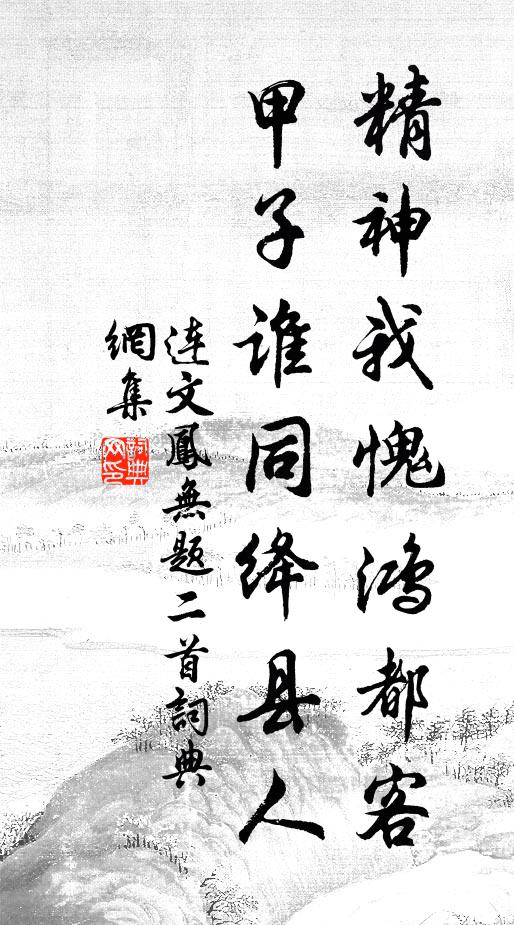 精神我愧鸿都客
甲子谁同绛县人
连文鳳無题二首詞典
網集